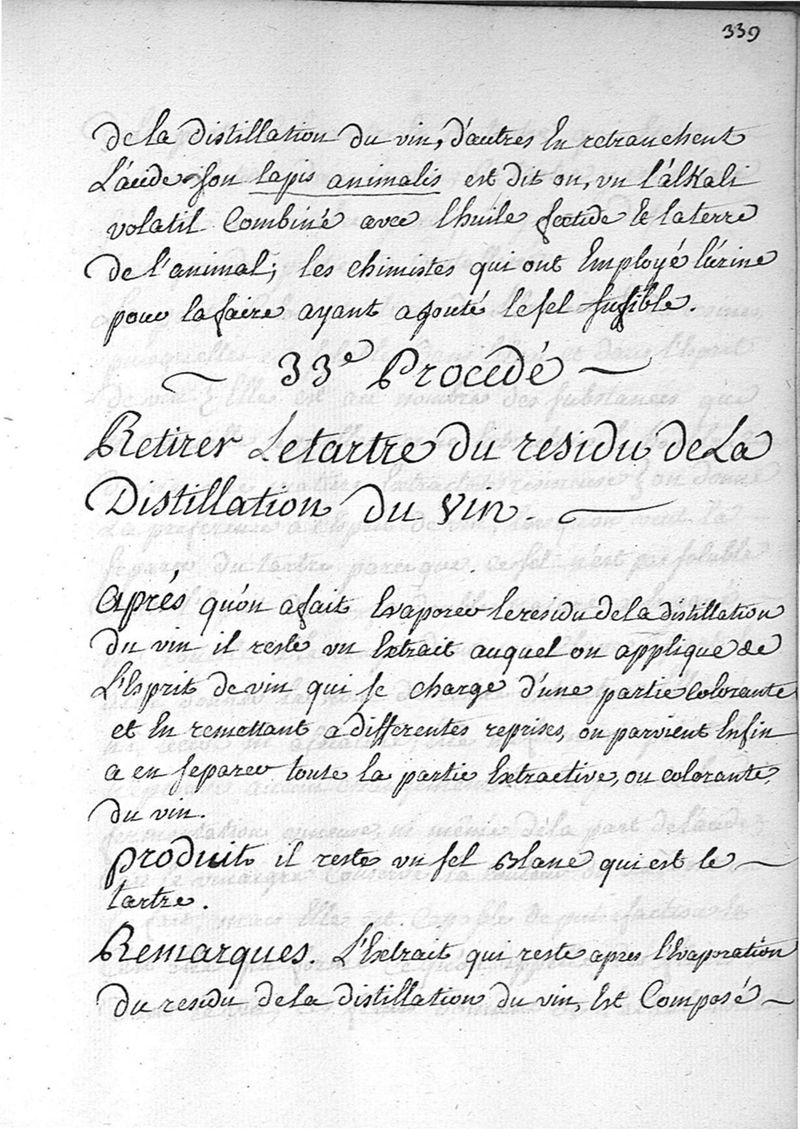 339
de la distillation du vin, d'autres En retranchent
L'acide son lapis animalis est dit on, un l'álkali
volatil Combiné avec l'huile foetide & la terre
de l'animal; les chimistes qui ont Employé l'úrine
pour la faire ayant ajouté le sel fusible.
~ 33e Procédé ~
Retirer Le tartre du residu de La
Distillation du Vin. ~
Aprés qu'on a fait Evaporer le residu de la distillation
du vin il reste un Extrait auquel on applique de
L'Esprit de vin qui se charge d'une partie Colorante
et En remettant a differentes reprises, on parvient Enfin
a en separer toute la partie Extractive, ou colorante,
du vin.
produit il reste un sel Blanc qui est le ~
tartre.
Remarques. L'Extrait qui reste apres l'Evaporation
du residu de la distillation du vin, Est Composé ~